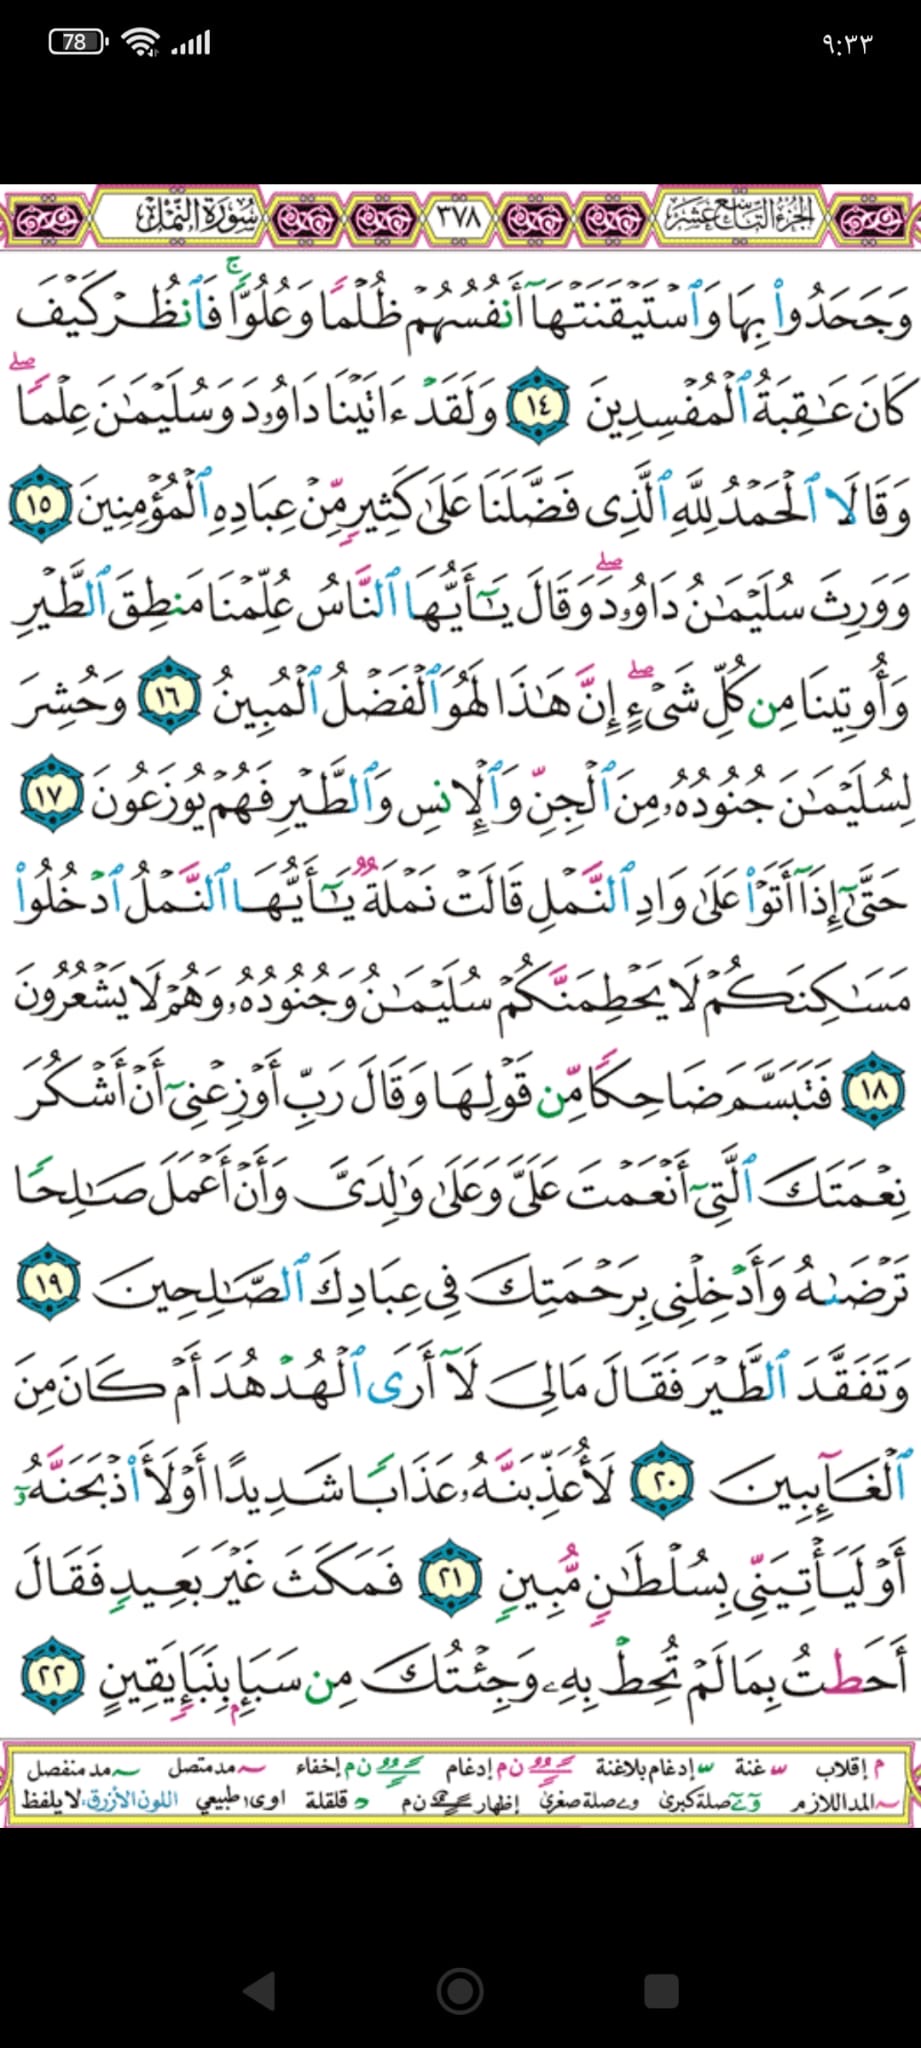 78
٩:٣٣
الجزء التاسع عشر ٣٧٨ سورة النمل
وَجَحَدُوا۟ بِهَا وَٱسْتَيْقَنَتْهَآ أَنفُسُهُمْ ظُلْمًا وَعُلُوًّا ۚ فَٱنظُرْ كَيْفَ
كَانَ عَـٰقِبَةُ ٱلْمُفْسِدِينَ ١٤ وَلَقَدْ ءَاتَيْنَا دَاوُۥدَ وَسُلَيْمَـٰنَ عِلْمًا ۖ
وَقَالَا ٱلْحَمْدُ لِلَّهِ ٱلَّذِى فَضَّلَنَا عَلَىٰ كَثِيرٍ مِّنْ عِبَادِهِ ٱلْمُؤْمِنِينَ ١٥
وَوَرِثَ سُلَيْمَـٰنُ دَاوُۥدَ ۖ وَقَالَ يَـٰٓأَيُّهَا ٱلنَّاسُ عُلِّمْنَا مَنطِقَ ٱلطَّيْرِ
وَأُوتِينَا مِن كُلِّ شَىْءٍ ۖ إِنَّ هَـٰذَا لَهُوَ ٱلْفَضْلُ ٱلْمُبِينُ ١٦ وَحُشِرَ
لِسُلَيْمَـٰنَ جُنُودُهُۥ مِنَ ٱلْجِنِّ وَٱلْإِنسِ وَٱلطَّيْرِ فَهُمْ يُوزَعُونَ ١٧
حَتَّىٰٓ إِذَآ أَتَوْا۟ عَلَىٰ وَادِ ٱلنَّمْلِ قَالَتْ نَمْلَةٌ يَـٰٓأَيُّهَا ٱلنَّمْلُ ٱدْخُلُوا۟
مَسَـٰكِنَكُمْ لَا يَحْطِمَنَّكُمْ سُلَيْمَـٰنُ وَجُنُودُهُۥ وَهُمْ لَا يَشْعُرُونَ
١٨ فَتَبَسَّمَ ضَاحِكًا مِّن قَوْلِهَا وَقَالَ رَبِّ أَوْزِعْنِىٓ أَنْ أَشْكُرَ
نِعْمَتَكَ ٱلَّتِىٓ أَنْعَمْتَ عَلَىَّ وَعَلَىٰ وَٰلِدَىَّ وَأَنْ أَعْمَلَ صَـٰلِحًا
تَرْضَىٰهُ وَأَدْخِلْنِى بِرَحْمَتِكَ فِى عِبَادِكَ ٱلصَّـٰلِحِينَ ١٩
وَتَفَقَّدَ ٱلطَّيْرَ فَقَالَ مَالِىَ لَآ أَرَى ٱلْهُدْهُدَ أَمْ كَانَ مِنَ
ٱلْغَآئِبِينَ ٢٠ لَأُعَذِّبَنَّهُۥ عَذَابًا شَدِيدًا أَوْ لَأَا۟ذْبَحَنَّهُۥٓ
أَوْ لَيَأْتِيَنِّى بِسُلْطَـٰنٍ مُّبِينٍ ٢١ فَمَكَثَ غَيْرَ بَعِيدٍ فَقَالَ
أَحَطتُ بِمَا لَمْ تُحِطْ بِهِۦ وَجِئْتُكَ مِن سَبَإٍۭ بِنَبَإٍ يَقِينٍ ٢٢
م إقلاب غنة إدغام بلاغنة ن م إدغام ن م إخفاء مد متصل مد منفصل
المد اللازم صلة كبرى وے صلة صغرى إظهار ن م د قلقلة اوى طبيعي اللون الأزرق: لا يلفظ